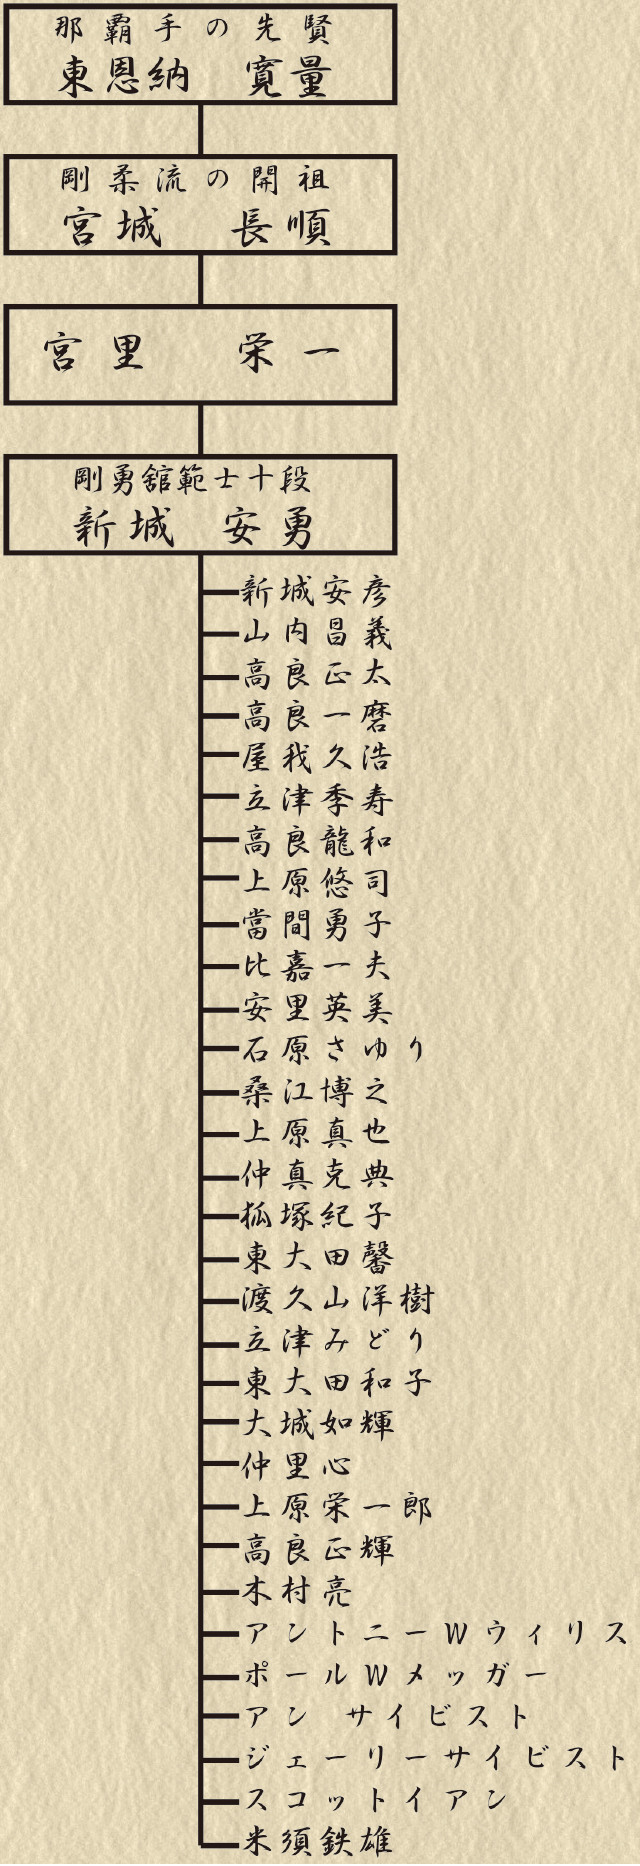 那覇手の先賢
東恩納　寛量
剛柔流の開祖
宮城　長順
宮里　栄一
剛勇舘範士十段
新城　安勇
新城安彦
山内昌義
高良正太
高良一磨
屋我久浩
立津季寿
高良龍和
上原悠司
當間勇子
比嘉一夫
安里英美
石原さゆり
桑江博之
上原真也
仲真克典
狐塚紀子
東大田馨
渡久山洋樹
立津みどり
東大田和子
大城如輝
仲里心
上原栄一郎
高良正輝
木村亮
アントニーWウィリス
ポールWメッガー
アン サイビスト
ジェーリーサイビスト
スコットイアン
米須鉄雄